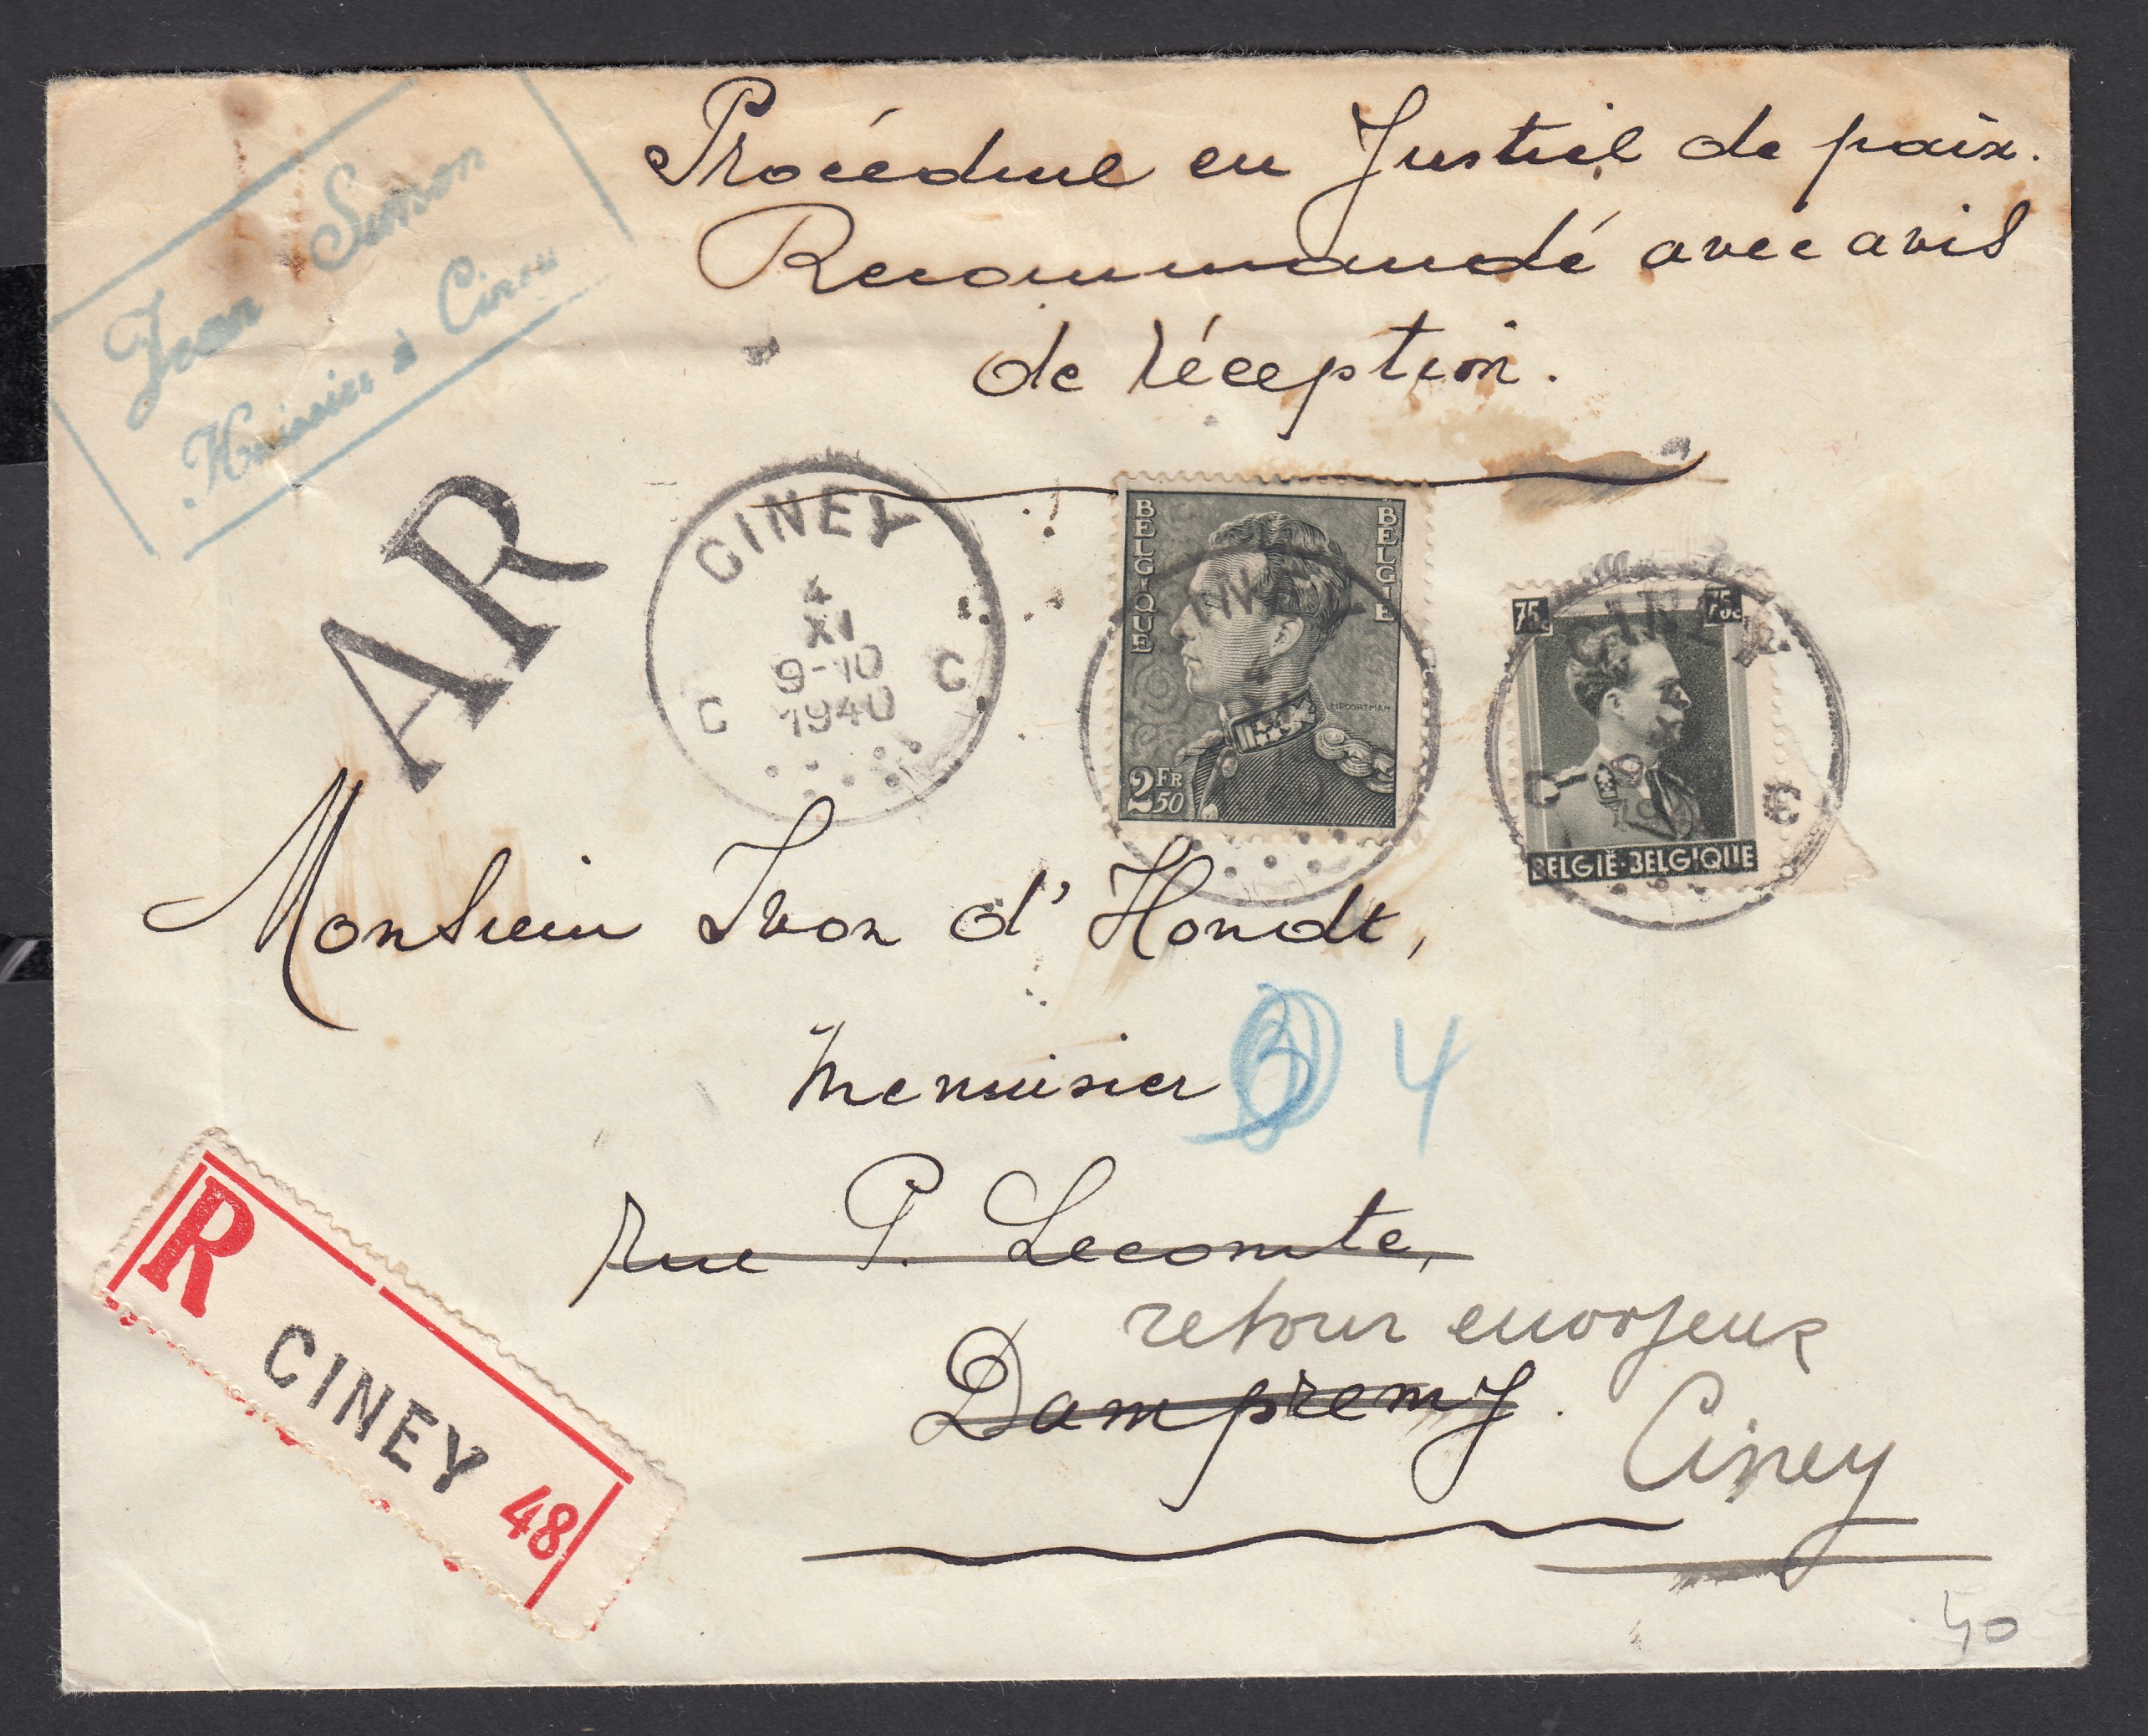 Jean Simon
Huissier à Ciney
Procédure en Justice de paix.
Recommandé avec avis
de réception.
AR
CINEY
4
XI
9-10
1940
C C
BELGIQUE
BELGIË
H.POORTMAN
2 FR 50
75c
75c
BELGIË-BELGIQUE
C C
Monsieur Ivon d'Hondt,
Menuisier
4
rue P. Lecomte,
retour envoyeur
Dampremy.
Ciney
R
CINEY
48
50